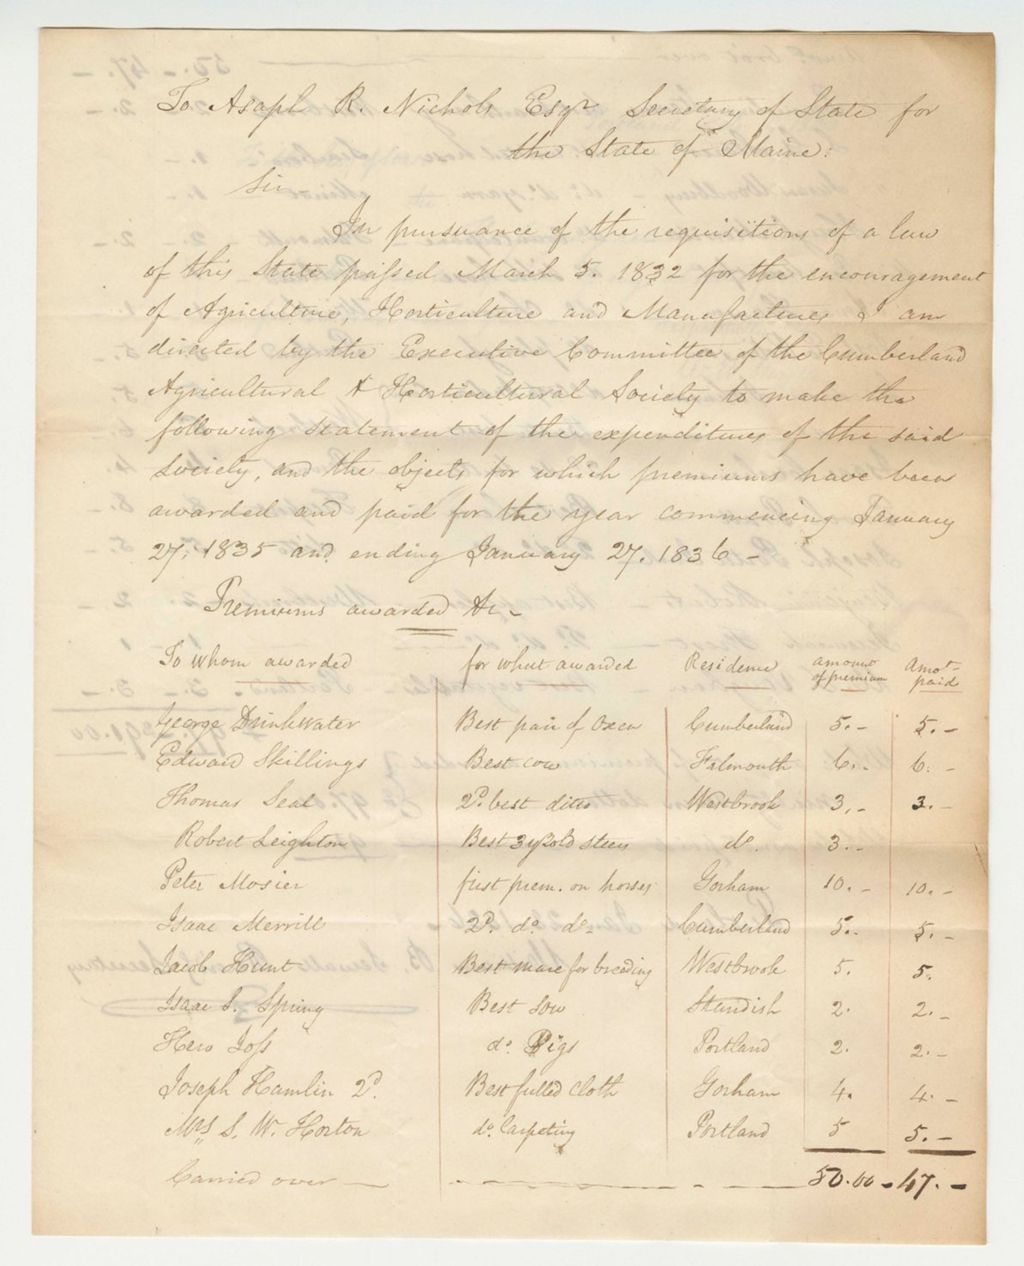 To Asaph R. Nichols Esqr Secretary of State for
the State of Maine:
Sir
In pursuance of the requisitions of a law
of this State passed March 5. 1832 for the encouragement
of Agriculture, Horticulture and Manufactures I am
directed by the Executive Committee of the Cumberland
Agricultural & Horticultural Society to make the
following statement of the expenditures of the said
Society, and the objects for which premiums have been
awarded and paid for the year commencing January
27. 1835 and ending January 27. 1836 -
Premiums awarded &c -
To whom awarded for what awarded Residence amount of premium Amot paid
George Drinkwater Best pair of Oxen Cumberland 5.- 5.-
Edward Skillings Best cow Falmouth 6.- 6.-
Thomas Seal 2d. best ditto Westbrook 3.- 3.-
Robert Leighton Best 3 yr old steers do. 3.-
Peter Mosier first prem. on horses Gorham 10.- 10.-
Isaac Merrill 2d. do. do- Cumberland 5.- 5.-
Jacob Hunt Best mare for breeding Westbrook 5. 5.
Isaac S. Spring Best Sow Standish 2. 2.-
do. Pigs Portland 2. 2.-
Joseph Hamlin 2d. Best fulled cloth Gorham 4. 4.-
Mrs S. W. Horton do. Carpeting Portland 5 5.-
Carried over - 50.00 - 47.-